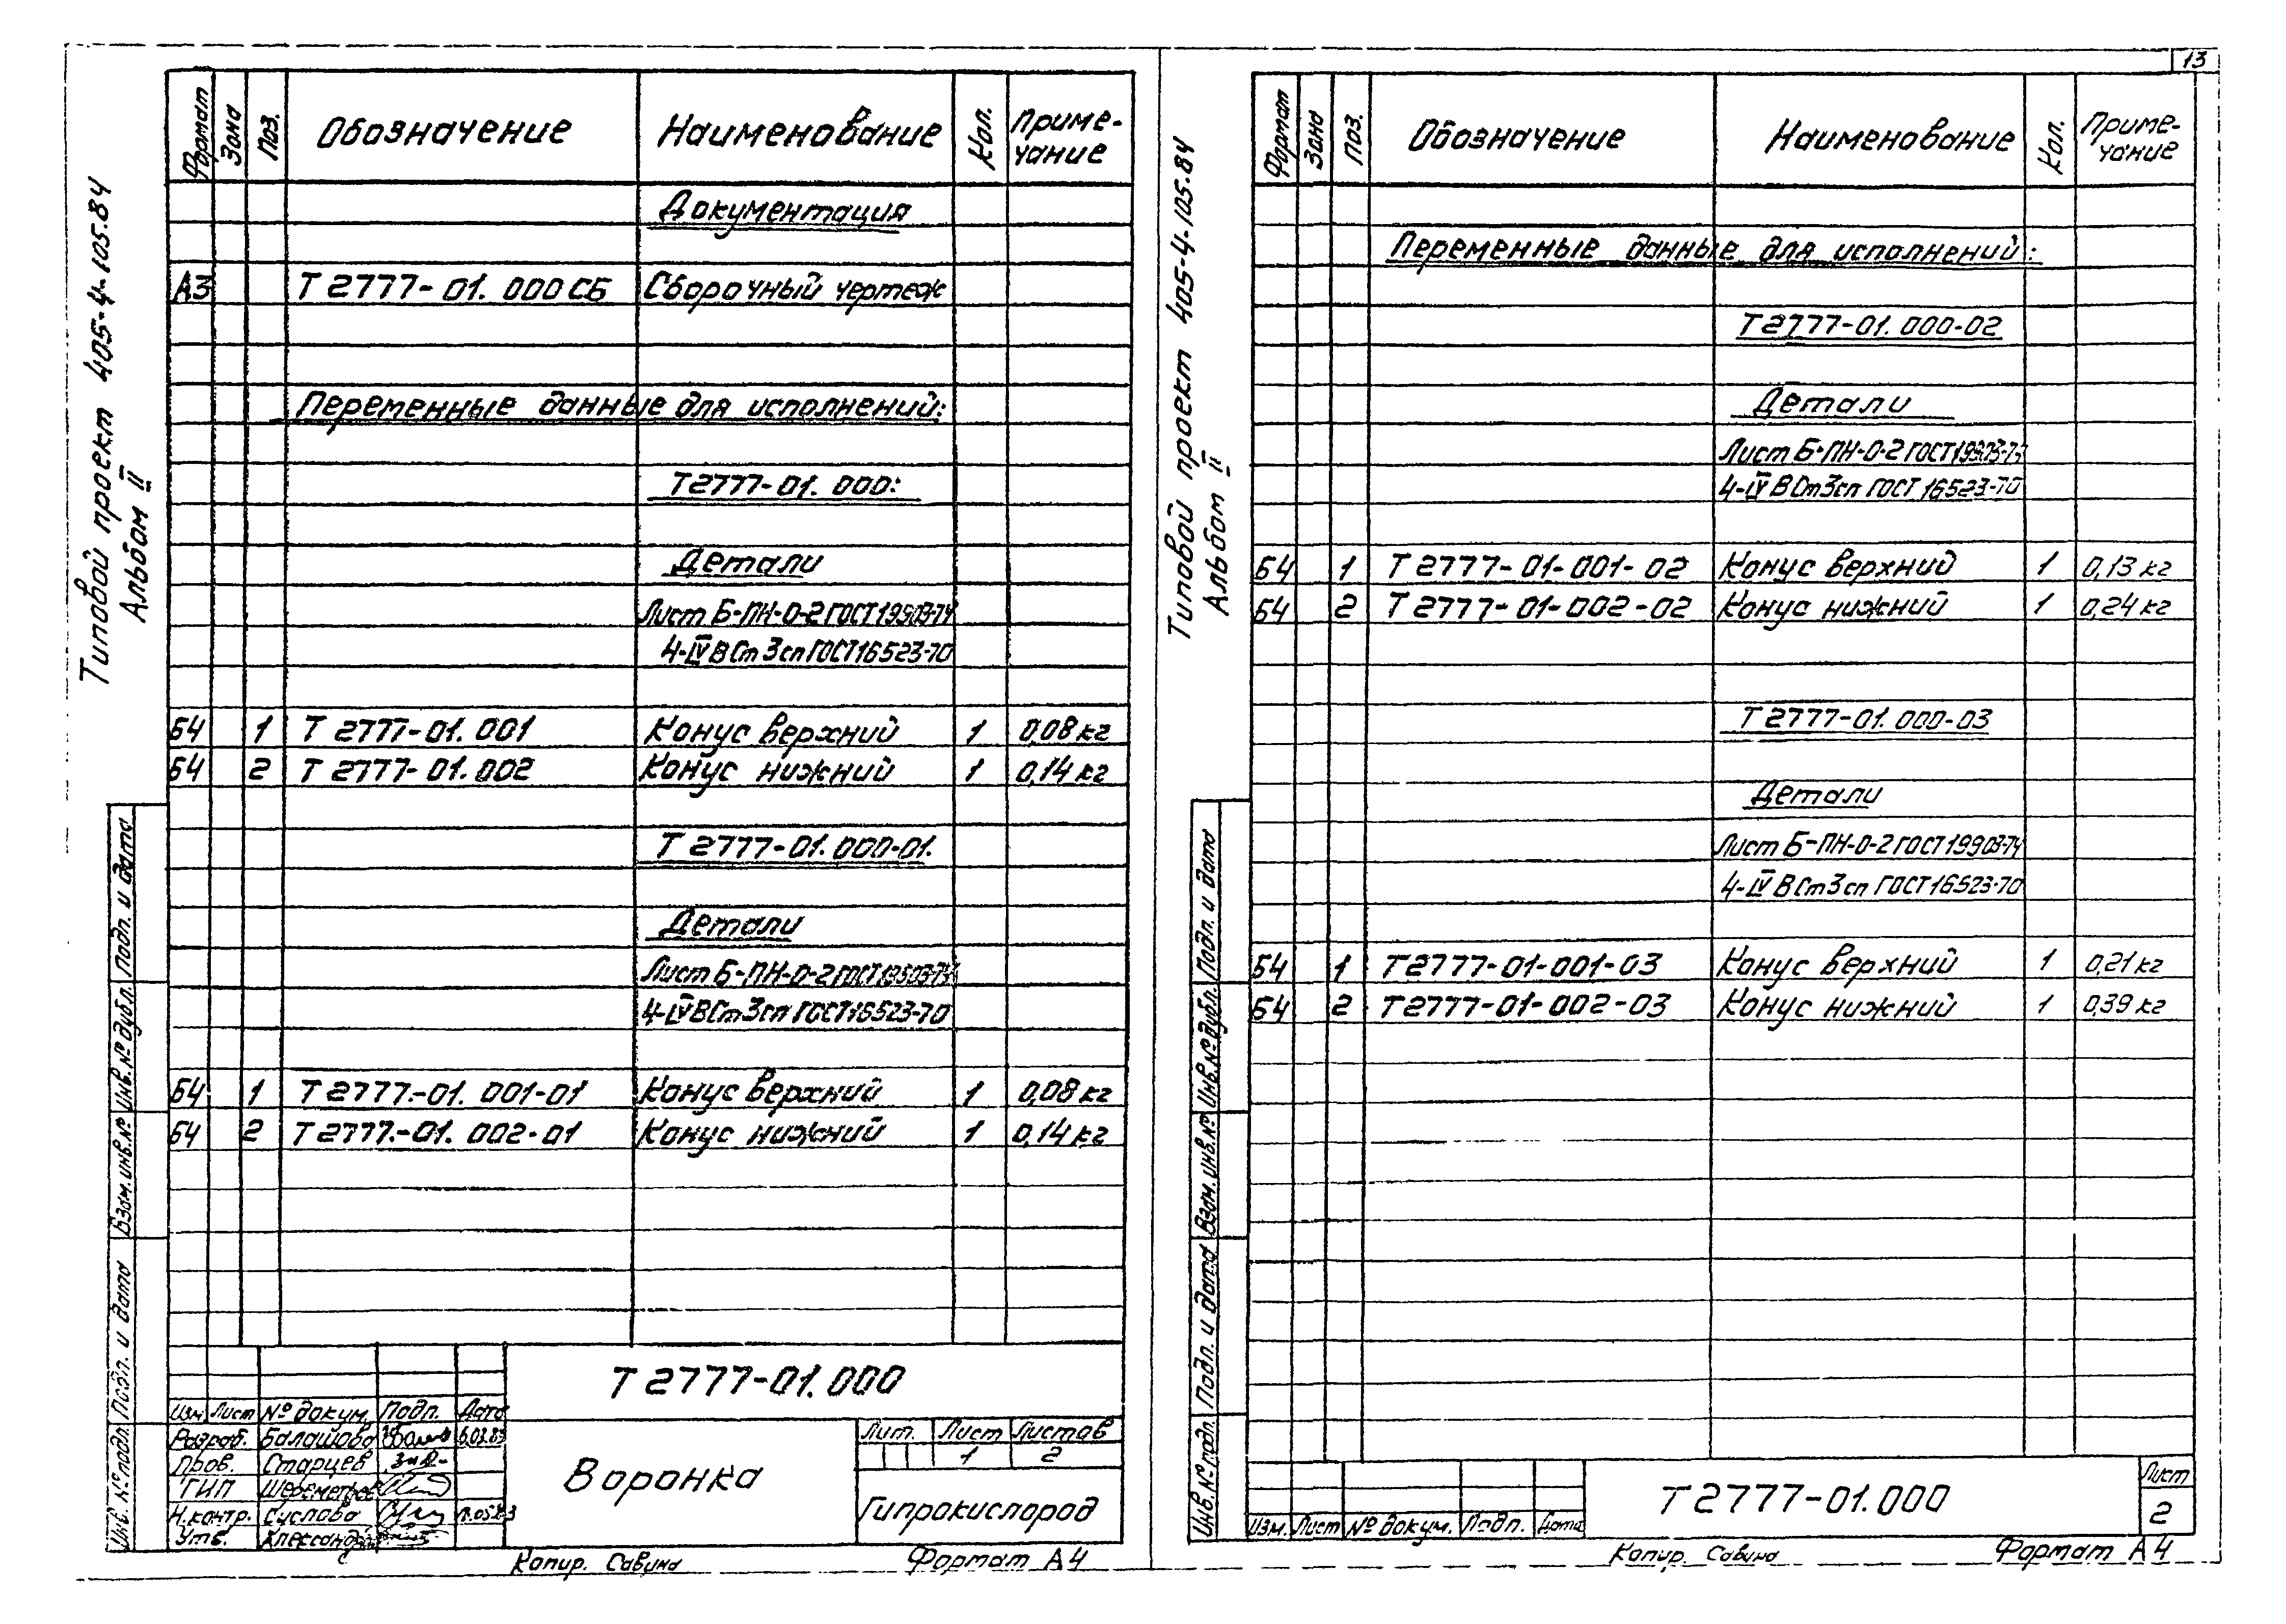 Типовой проект 405-4-105.84
Альбом II
Формат Зона Поз. Обозначение Наименование Кол. Приме-
чание
Документация
А3 Т 2777-01.000СБ Сборочный чертеж
Переменные данные для исполнений:
Т2777-01.000:
Детали
Лист Б-ПН-О-2 ГОСТ 19903-74
4-IV ВСт3сп ГОСТ 16523-70
Б4 1 Т 2777-01.001 Конус верхний 1 0,08 кг
Б4 2 Т 2777-01.002 Конус нижний 1 0,14 кг
Т 2777-01.000-01.
Детали
Лист Б-ПН-О-2 ГОСТ 19903-74
4-IV ВСт3сп ГОСТ 16523-70
Б4 1 Т 2777-01.001-01 Конус верхний 1 0,08 кг
Б4 2 Т 2777-01.002-01 Конус нижний 1 0,14 кг
Инв.№ подл. Подп. и дата Взам.инв.№ Инв.№ дубл. Подп. и дата
Т 2777-01.000
Изм. Лист № докум. Подп. Дата
Разраб. Балашова
Пров. Старцев
ГИП
Н.контр. Суслова
Утв.
Воронка
Лит. Лист Листов
1 2
Гипрокислород
Копир. Савина Формат А4
13
Типовой проект 405-4-105.84
Альбом II
Формат Зона Поз. Обозначение Наименование Кол. Приме-
чание
Переменные данные для исполнений:
Т2777-01.000-02
Детали
Лист Б-ПН-О-2 ГОСТ 19903-74
4-IV ВСт3сп ГОСТ 16523-70
Б4 1 Т 2777-01-001-02 Конус верхний 1 0,13 кг
Б4 2 Т 2777-01-002-02 Конус нижний 1 0,24 кг
Т 2777-01.000-03
Детали
Лист Б-ПН-О-2 ГОСТ 19903-74
4-IV ВСт3сп ГОСТ 16523-70
Б4 1 Т2777-01-001-03 Конус верхний 1 0,21 кг
Б4 2 Т2777-01-002-03 Конус нижний 1 0,39 кг
Инв.№ подл. Подп. и дата Взам.инв.№ Инв.№ дубл. Подп. и дата
Изм. Лист № докум. Подп. Дата
Т 2777-01.000
Лист
2
Копир. Савина Формат А4